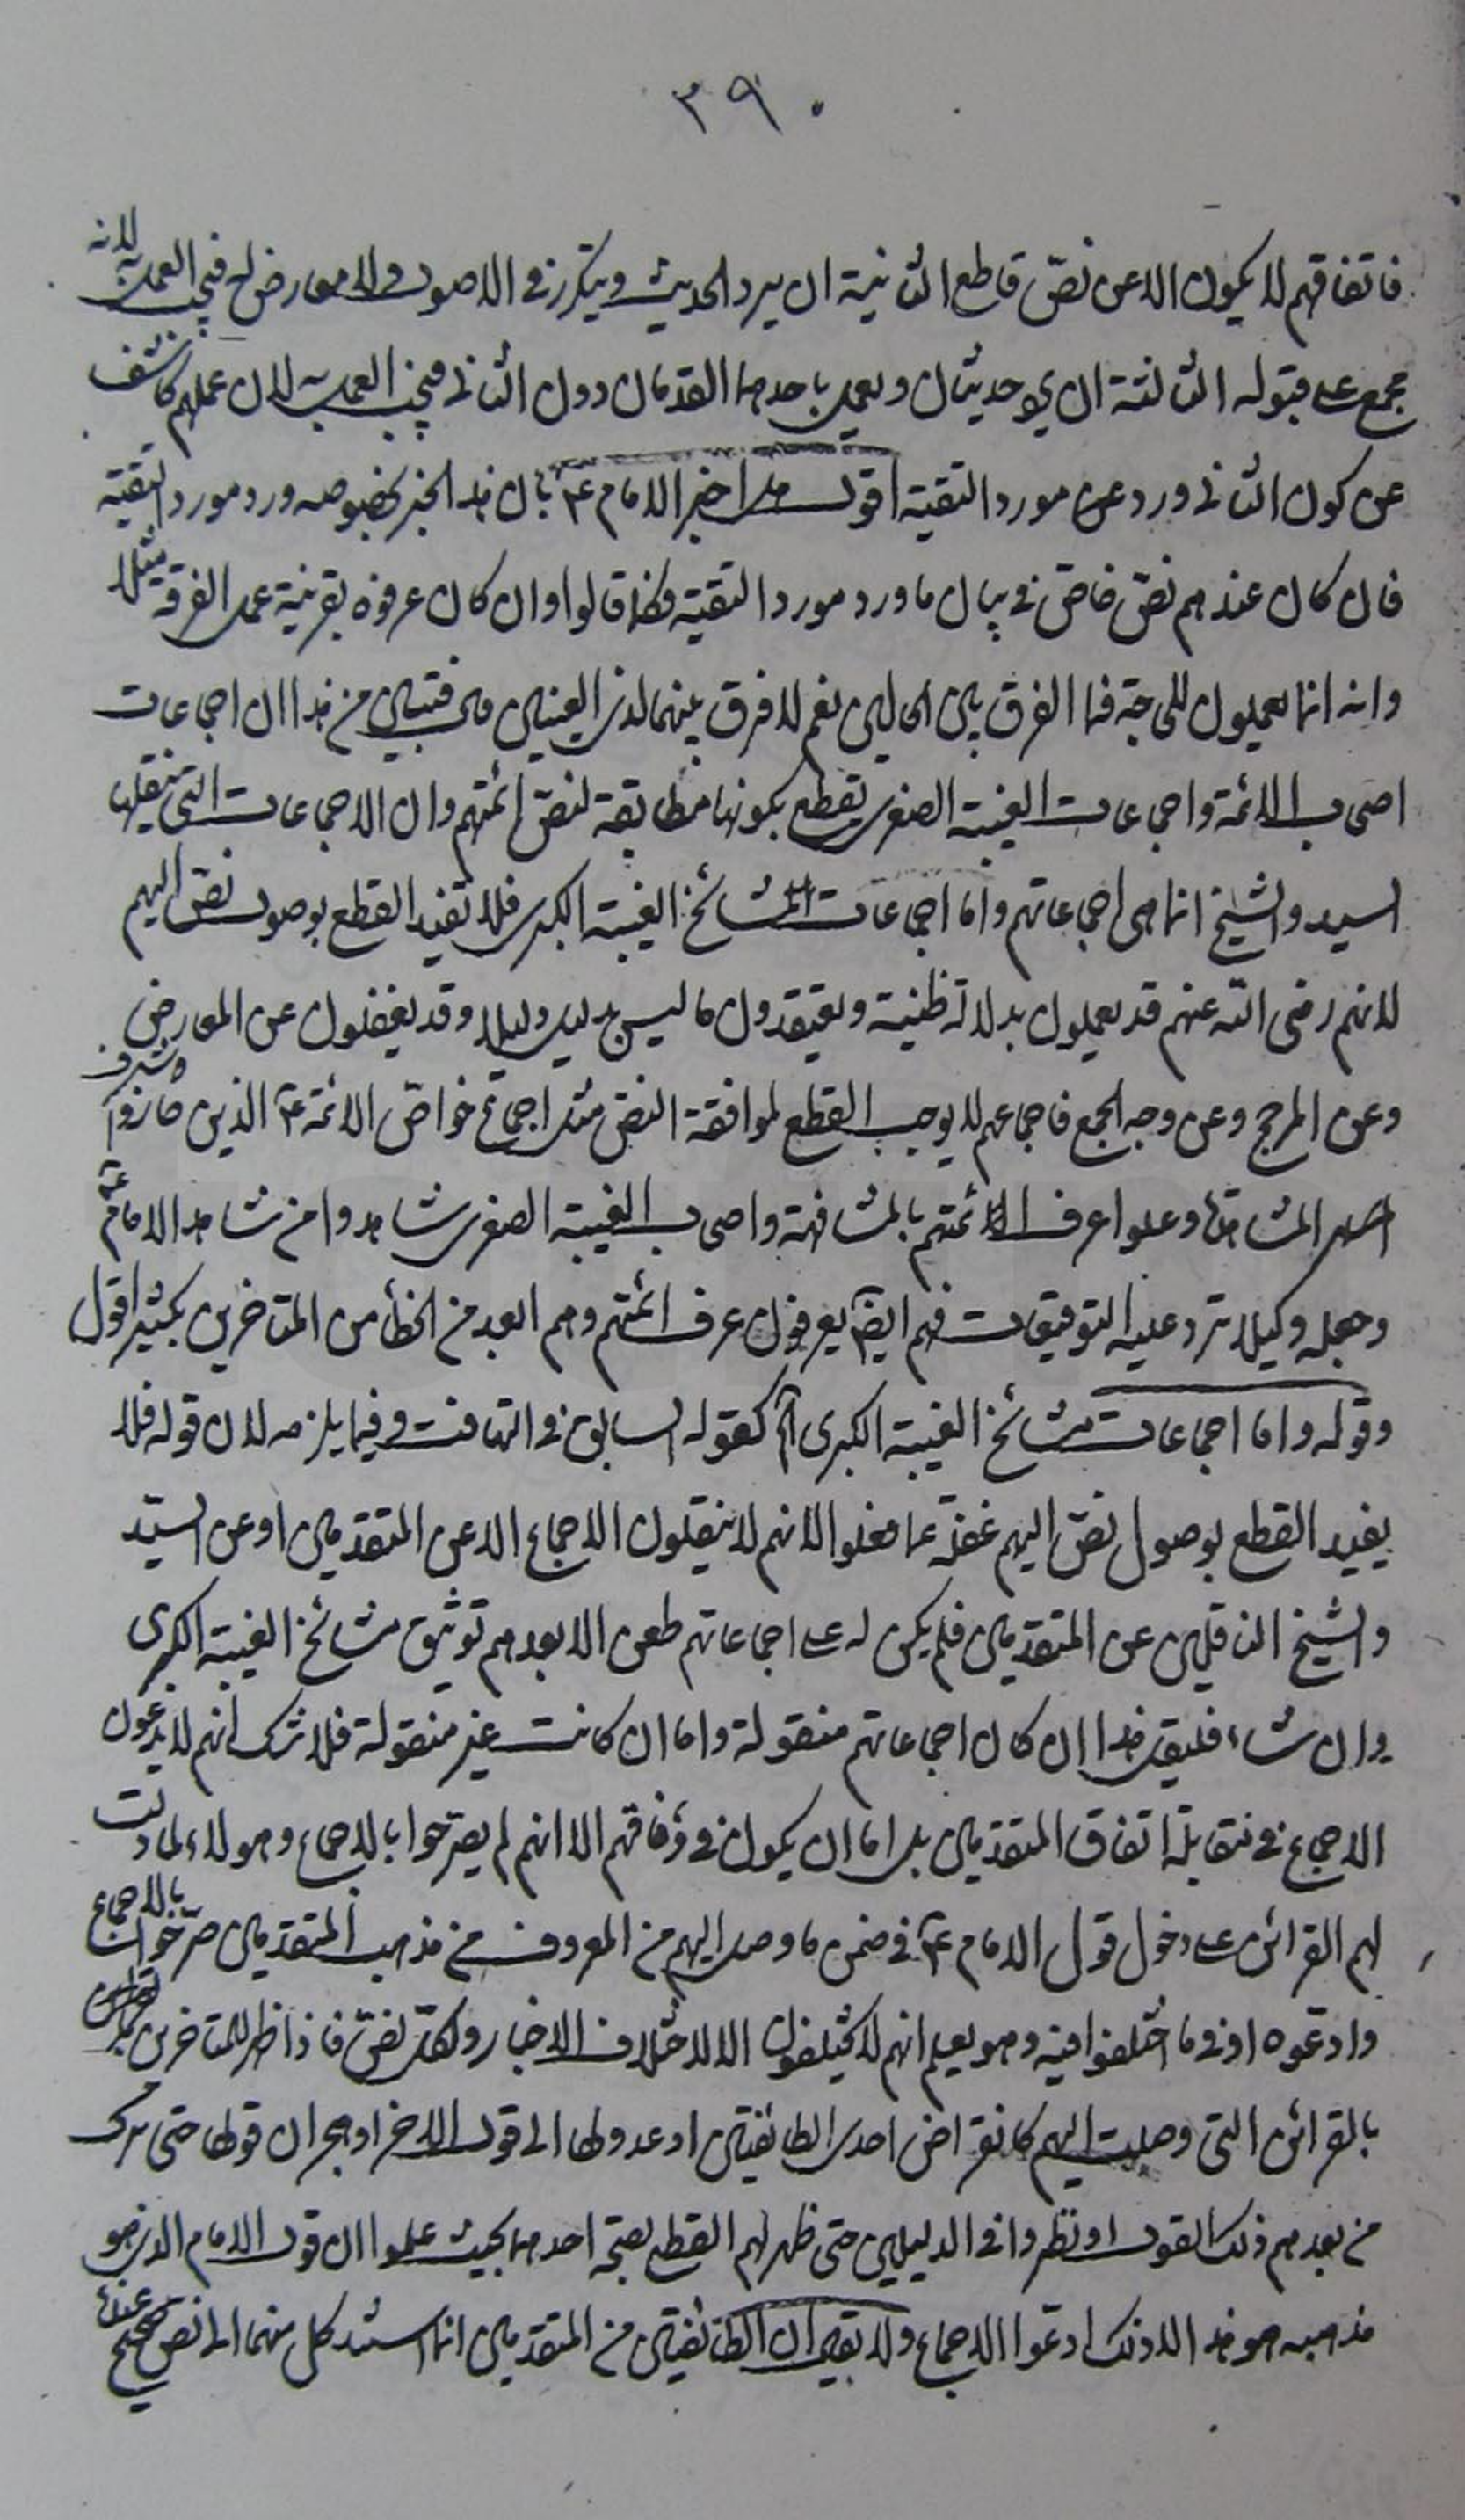 ٣٩٠
فاتفاقهم لا يكون الا عن نصّ قاطع الثانية ان يرد الحديث ويتكرر في الاصول ولا معارض له فيجب العمل به لانه
مجمع على قبوله الثالثة ان يجئ حديثان ويعمل باحدهما القدماء دون الثاني فيجب العمل به لان عملهم كاشف
عن كون الثاني ورد عن مورد التقية اقول هل اخبر الامام ع بان هذا الخبر بخصوصه ورد مورد التقية
فان كان عندهم نصّ خاصّ في بيان ما ورد مورد التقية فكذا قالوا وان كان عرفوه بقرينة عمل الفرقة مثلا
وانه انما يعملون للحجة فما الفرق بين الحالين نعم لا فرق بينهما لذي العينين فتبين من هذا ان اجماعات
اصحاب الائمة واجماعات الغيبة الصغرى يقطع بكونها مطابقة لنصّ ائمتهم وان الاجماعات التي ينقلها
السيد والشيخ انما هي اجماعاتهم واما اجماعات مشائخ الغيبة الكبرى فلا تفيد القطع بوصول نصّ اليهم
لانهم رضي الله عنهم قد يعملون بدلالة ظنية ويعتقدون ما ليس بدليل دليلا وقد يغفلون عن المعارض
وعن المرجح وعن وجه الجمع فاجماعهم لا يوجب القطع لموافقة النص مثل اجماع خواصّ الائمة ع الذين حازوا شرف
المشاهدة وعلموا عرف ائمتهم بالمشافهة واصحاب الغيبة الصغرى شاهدوا من شاهد الامام ع
وجعله وكيلا ترد عليه التوقيعات فهم ايضا يعرفون عرف ائمتهم وهم ابعد من الخطأ من المتاخرين بكثير اقول
وقوله واما اجماعات مشائخ الغيبة الكبرى الخ كقوله السابق في التهافت وفيما يلزمه لان قوله فلا
يفيد القطع بوصول نصّ اليهم غفلة عما فعلوا لانهم لا ينقلون الاجماع الا عن المتقدمين او عن السيّد
والشيخ الناقلين عن المتقدمين فلم يكن له على اجماعاتهم طعن الا بعدم توثيق مشائخ الغيبة الكبرى
وان شاء فليقل هذا ان كان اجماعاتهم منقولة واما ان كانت غير منقولة فلا شك انهم لا يدعون
الاجماع في مقابلة اتفاق المتقدمين بل اما ان يكون في وفاقهم الا انهم لم يصرّحوا بالاجماع وهؤلاء لما دلت
لهم القرائن على دخول قول الامام ع في ضمن ما وصل اليهم من المعروف من مذهب المتقدمين صرّحوا بالاجماع
وادعوه او في ما اختلفوا فيه وهو يعلم انهم لا يختلفون الا لاختلاف الاخبار ولكلّ نصّ فاذا ظهر للمتاخرين
بالقرائن التي وصلت اليهم كانقراض احدى الطائفتين او عدولها الى قول الاخر او هجران قولها حتى ترك
من بعدهم ذلك القول او نظروا في الدليلين حتى ظهر لهم القطع بصحة احدهما بحيث علموا ان قول الامام الذي هو
مذهبه هو هذا لا ذلك ادعوا الاجماع ولا يقال ان الطائفتين من المتقدمين انما استند كل منهما الى نصّ صحيح عنده